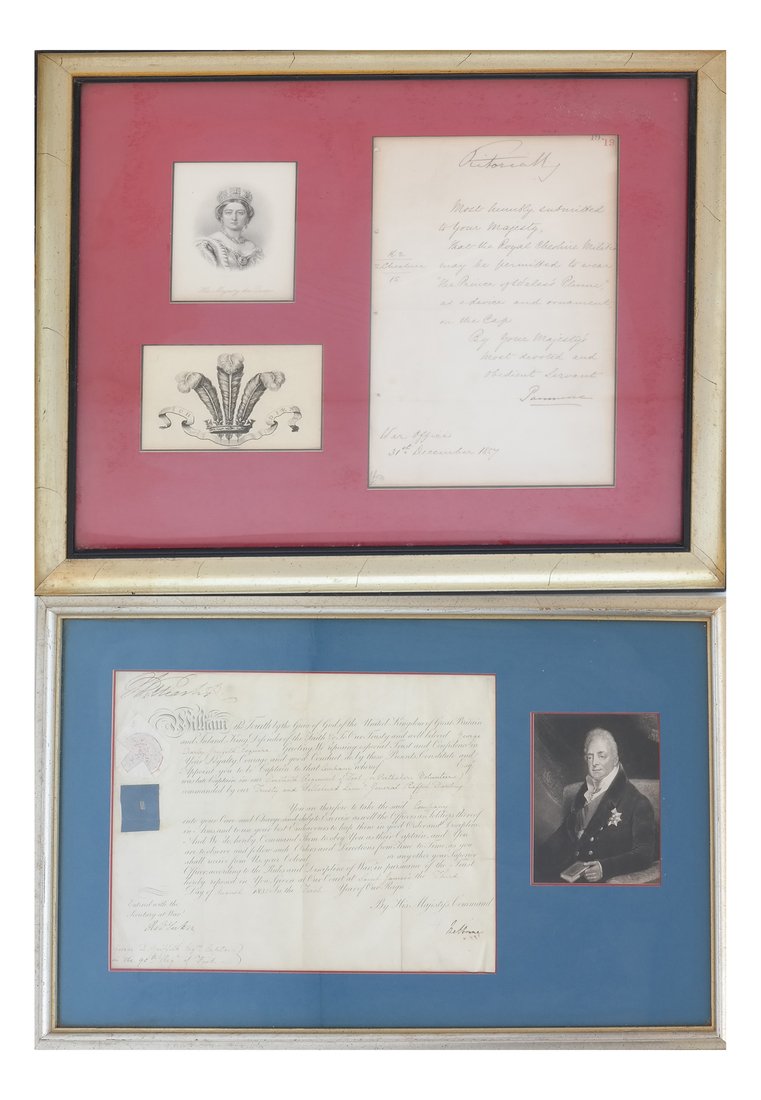 19
Victoria R
Most humbly submitted
to Your Majesty,
that the Royal Cheshire Militia
may be permitted to wear
"the Prince of Wales's Plume"
as a device and ornament
on the Cap
By Your Majesty's
most devoted and
obedient Servant
Panmure
Cheshire
15
War Office
31st December 1857
Her Majesty the Queen
ICH DIEN
William the Fourth by the Grace of God of the United Kingdom of Great Britain
and Ireland King, Defender of the Faith &c To Our Trusty and well beloved George
Esquire Greeting We reposing especial Trust and Confidence in
Your Loyalty, Courage and good Conduct, do by these Presents Constitute and
Appoint you to be Captain to that Company whereof
was late Captain in our Regiment of Foot
commanded by our Trusty and Welbeloved General
You are therefore to take the said Company
into your Care and Charge and duly to Exercise as well the Officers as Soldiers thereof
in Arms and to use your best Endeavours to keep them in good Order and Discipline
And We do hereby Command Them to Obey You as their Captain and You
are to observe and follow such Orders and Directions from Time to Time as you
shall receive from Us your Colonel or any other your Superior
Officer, according to the Rules and Discipline of War in pursuance of the Trust
hereby reposed in You Given at Our Court at Saint James's the Third
Day of In the First Year of Our Reign
By His Majesty's Command
Entered with the
Secretary at War
Melbourne
in the 90th Regt of Foot